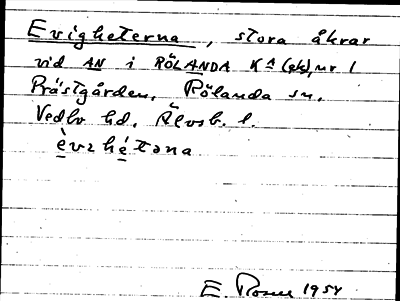 Evigheterna, stora åkrar
vid AN i RÖLANDA K:A (gk), nr 1
Prästgården, Rölanda sn,
Vedbo hd, Älvsb. l.
èvɩhé̱təna
E. 1954